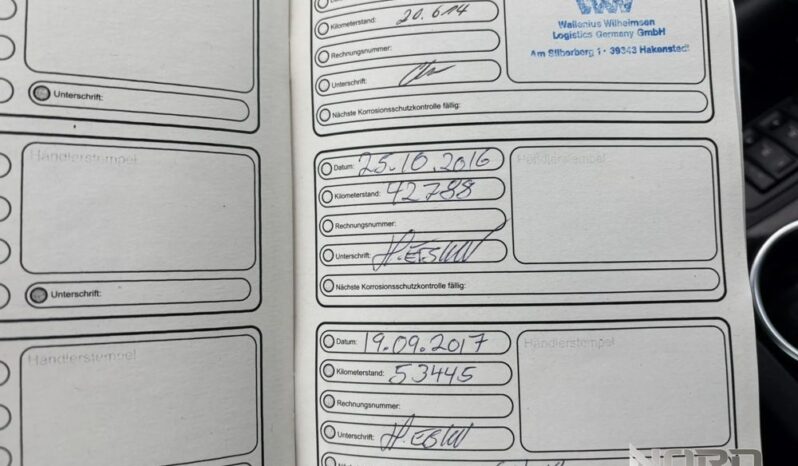 Unterschrift:
Händlerstempel
Unterschrift:
Händlerstempel
Kilometerstand: 20.614
Rechnungsnummer:
Unterschrift:
Nächste Korrosionsschutzkontrolle fällig:
Wallenius Wilhelmsen
Logistics Germany GmbH
Am Silberberg 1 • 39343 Hakenstedt
Datum: 25.10.2016
Kilometerstand: 42788
Rechnungsnummer:
Unterschrift:
Nächste Korrosionsschutzkontrolle fällig:
Händlerstempel
Datum: 19.09.2017
Kilometerstand: 53445
Rechnungsnummer:
Unterschrift:
Händlerstempel
NORD